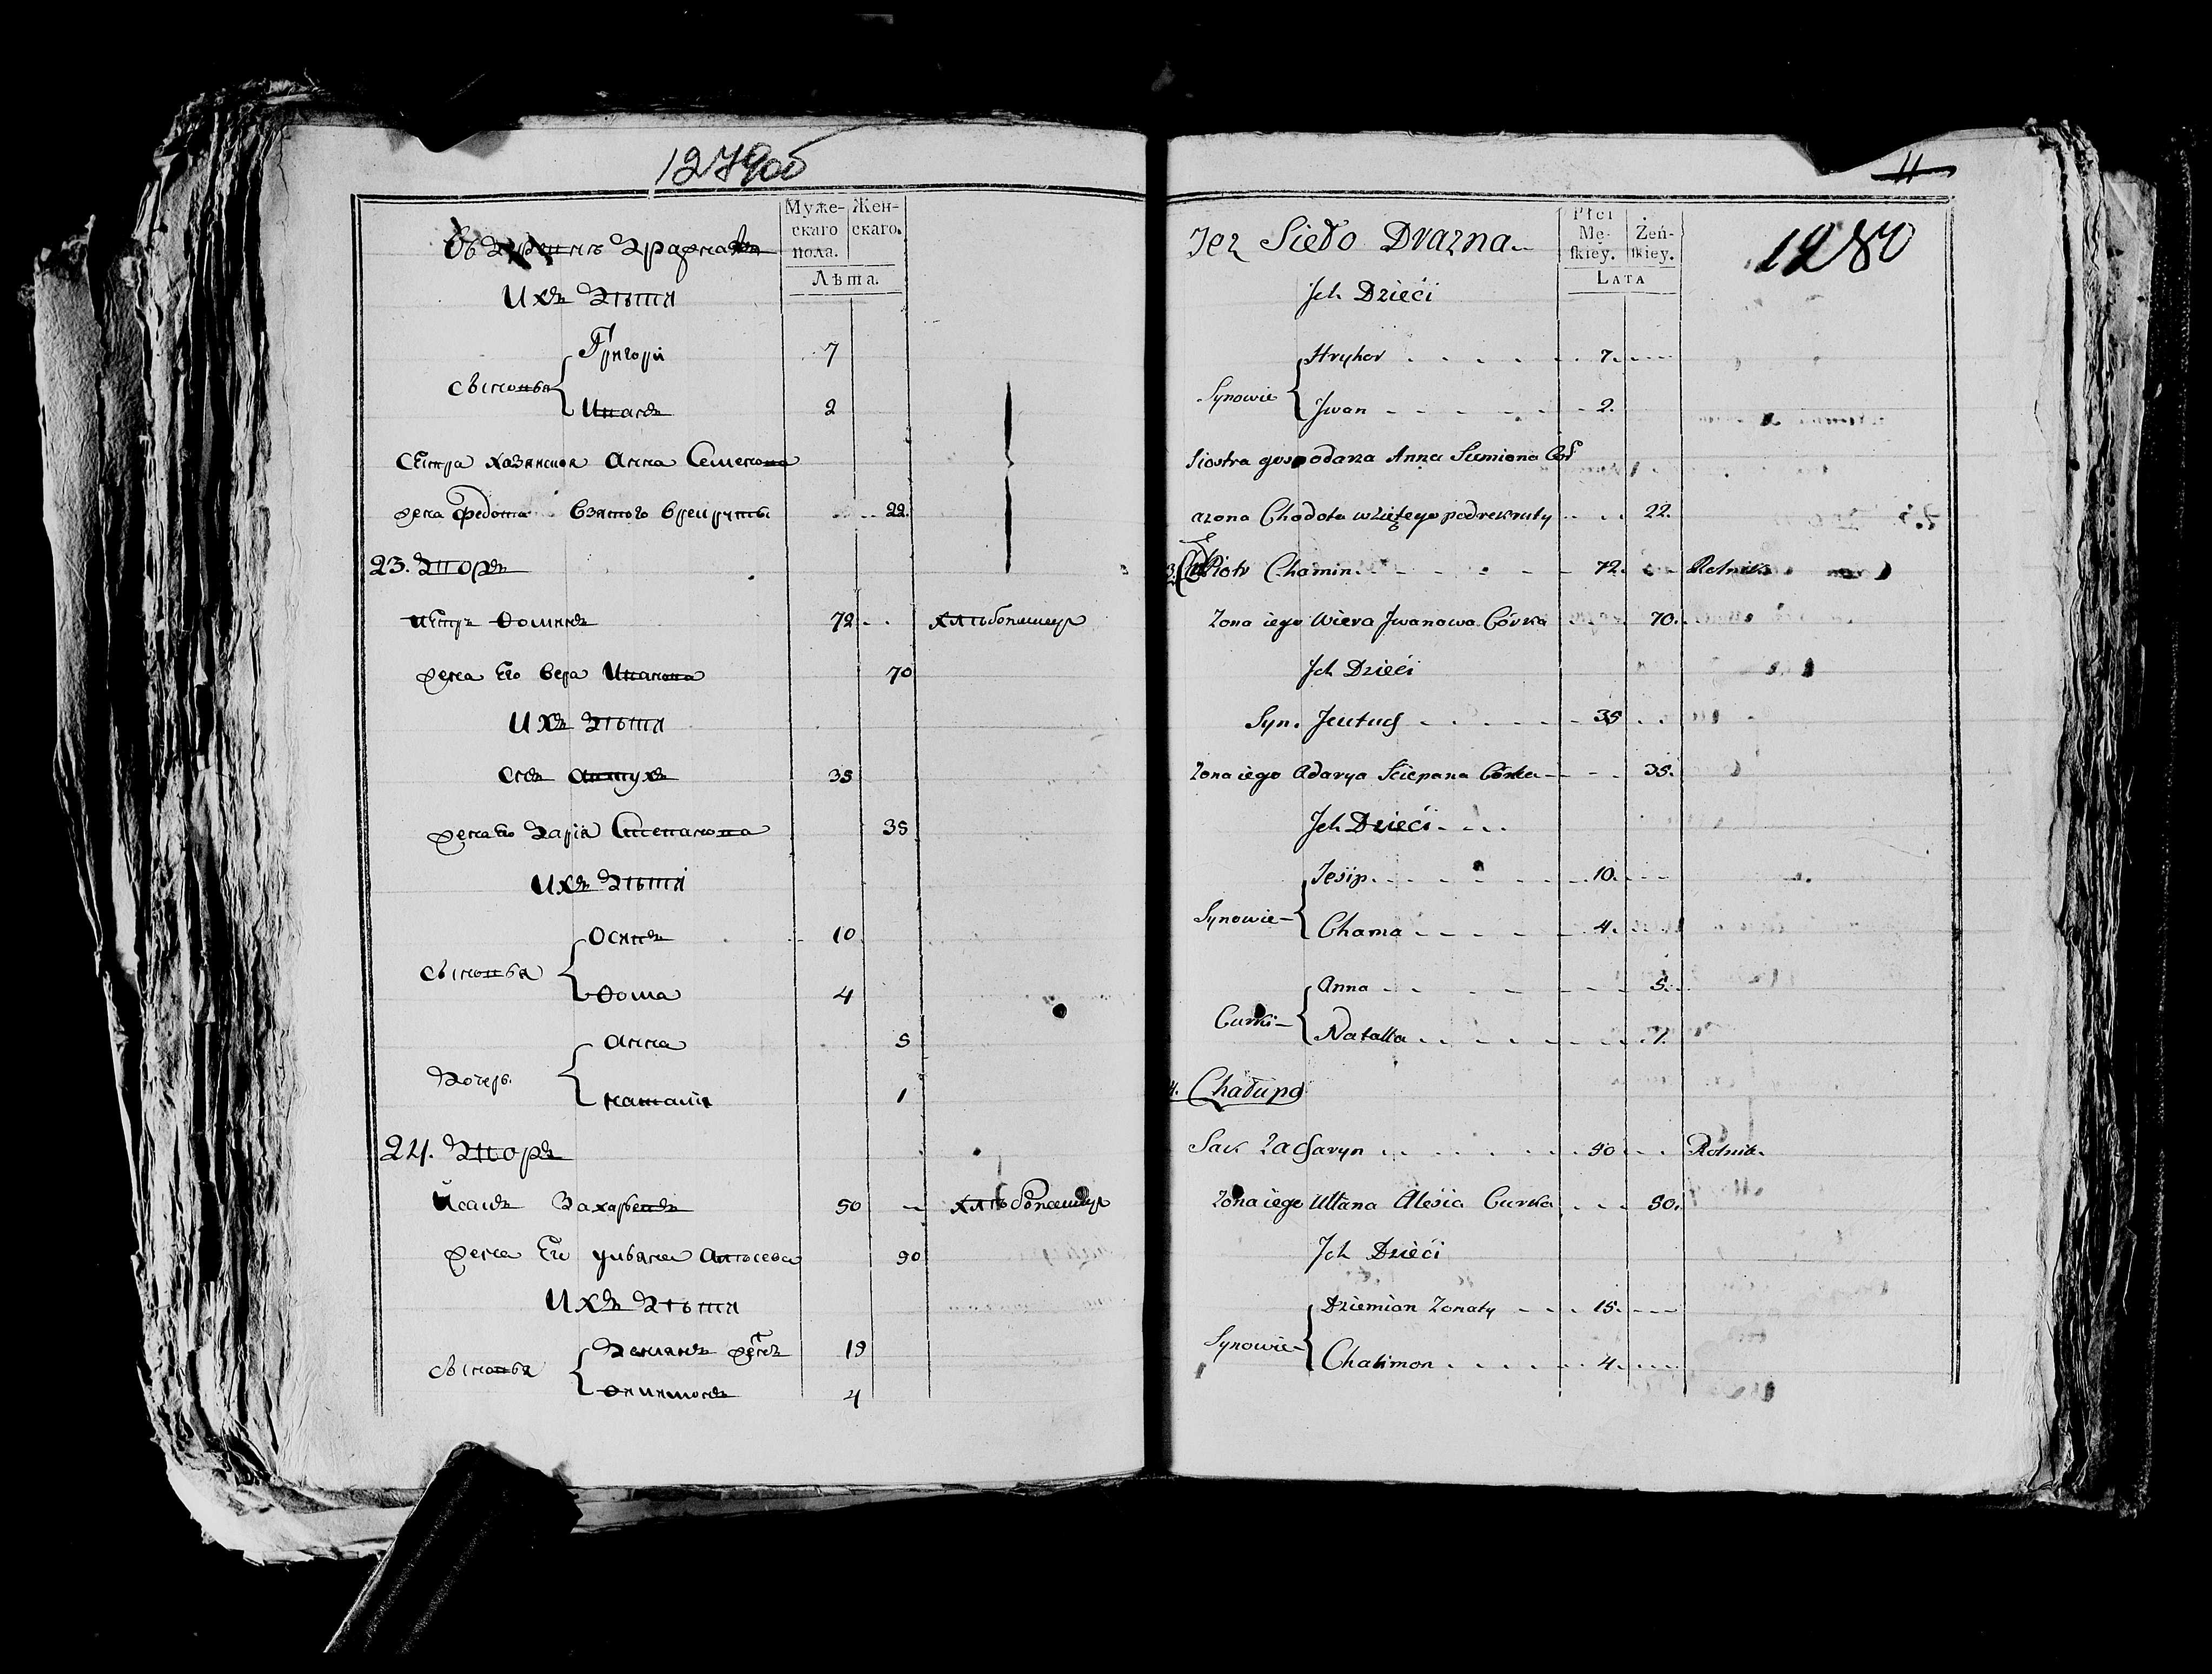 1279об
Мужескаго пола.
Женскаго.
Лѣта.
Въ деревнѣ Дражна
Ихъ дѣти
Сыновья
Григори 7
Иванъ 2
Сестра хазянская Анна Семенова
жена Федота взятого врекруты 22.
23. Дворъ
Петръ Фоминъ 72 хлѣбопашецъ
жена его вера Иванова 70
Ихъ дѣти
Снъ Антухъ 35
жена его Дарія Степанова 35
Ихъ дѣти
Сыновья
Осипъ 10
Фома 4
Дочерь
Анна 5
наталія 1
24. Дворъ
Исакъ Захарьевъ 50 хлѣбопашецъ
жена Его ульяна Алѣсева 50
Ихъ дѣти
Сыновья
Демьянъ жентъ 15
Филимонъ 4
11
1280
Jez Sieło Drazna
Płci Męſkiey.
Żeńſkiey.
LATA
Jch Dzieći
Synowie
Hryhor 7.
Jwan 2.
Siostra gospodarza Anna Siemiona Cór
azona Chodota wziętego podrekruty 22.
Piotr Chomin 72. Rolnik
Zona iego Wiera Jwanowa Córka 70.
Jch Dzieći
Syn. Jeutuch 35
Zona iego Adarya Sciepana Córka 35.
Jch Dzieći
Synowie
Jesip 10.
Choma 4.
Curki
Anna 5.
Natalla 1.
4. Chałupa
Sak Zacharyn 50 Rolnik.
Zona iego Ullana Alesia Curka 50.
Jch Dzieći
Synowie
Dziemian Zonaty 15.
Chalimon 4.